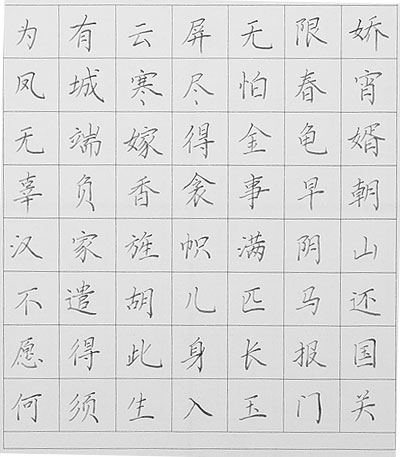 为有云屏无限娇
凤城寒尽怕春宵
无端嫁得金龟婿
辜负香衾事早朝
汉家旌帜满阴山
不遣胡儿匹马还
愿得此身长报国
何须生入玉门关